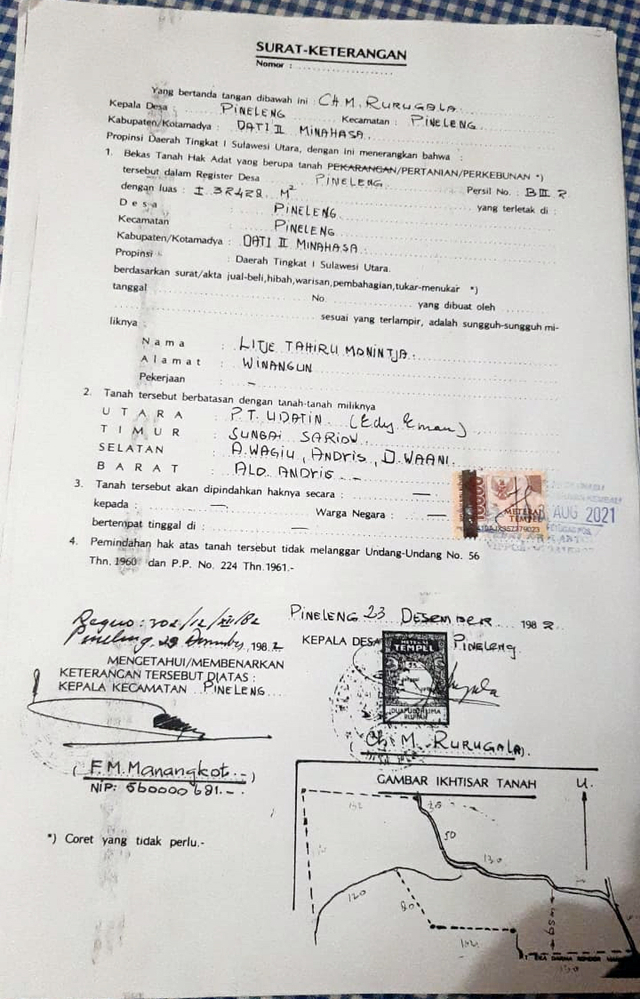 SURAT-KETERANGAN
Nomor :
Yang bertanda tangan dibawah ini : CH M. RURUGALA
Kepala Desa : PINELENG Kecamatan : PINELENG
Kabupaten/Kotamadya : DATI II MINAHASA
Propinsi Daerah Tingkat I Sulawesi Utara, dengan ini menerangkan bahwa :
1. Bekas Tanah Hak Adat yang berupa tanah PEKARANGAN/PERTANIAN/PERKEBUNAN *)
tersebut dalam Register Desa PINELENG Persil No. : B III 2
dengan luas : ± 32428 M² yang terletak di :
Desa : PINELENG
Kecamatan : PINELENG
Kabupaten/Kotamadya : DATI II MINAHASA
Propinsi : Daerah Tingkat I Sulawesi Utara.
berdasarkan surat/akta jual-beli,hibah,warisan,pembahagian,tukar-menukar *)
tanggal No. yang dibuat oleh
sesuai yang terlampir, adalah sungguh-sungguh mi-
liknya :
Nama : LITJE TAHIRU MONINTJA
Alamat : WINANGUN
Pekerjaan : -
2. Tanah tersebut berbatasan dengan tanah-tanah miliknya
UTARA : P.T. UDATIN (Edy Eman)
TIMUR : SUNGAI SARIOW
SELATAN : A. WAGIU, ANDRIS, D. WAANI.
BARAT : ALO. ANDRIS -
3. Tanah tersebut akan dipindahkan haknya secara : —
kepada : — Warga Negara : —
bertempat tinggal di : —
METERAI
TEMPEL
AUG 2021
4. Pemindahan hak atas tanah tersebut tidak melanggar Undang-Undang No. 56
Thn. 1960 dan P.P. No. 224 Thn.1961.-
PINELENG 23 DESEMBER 1982
Pineleng, 23 Desember 1982
KEPALA DESA Pineleng
MENGETAHUI/MEMBENARKAN
KETERANGAN TERSEBUT DIATAS :
KEPALA KECAMATAN PINELENG
METERAI
TEMPEL
DUAPULUH LIMA
RUPIAH
(Ch. M. RURUGALA)
(F.M. Manangkot.-)
NIP: 560000691.-
GAMBAR IKHTISAR TANAH
U.
50
130
120
80
*) Coret yang tidak perlu.-